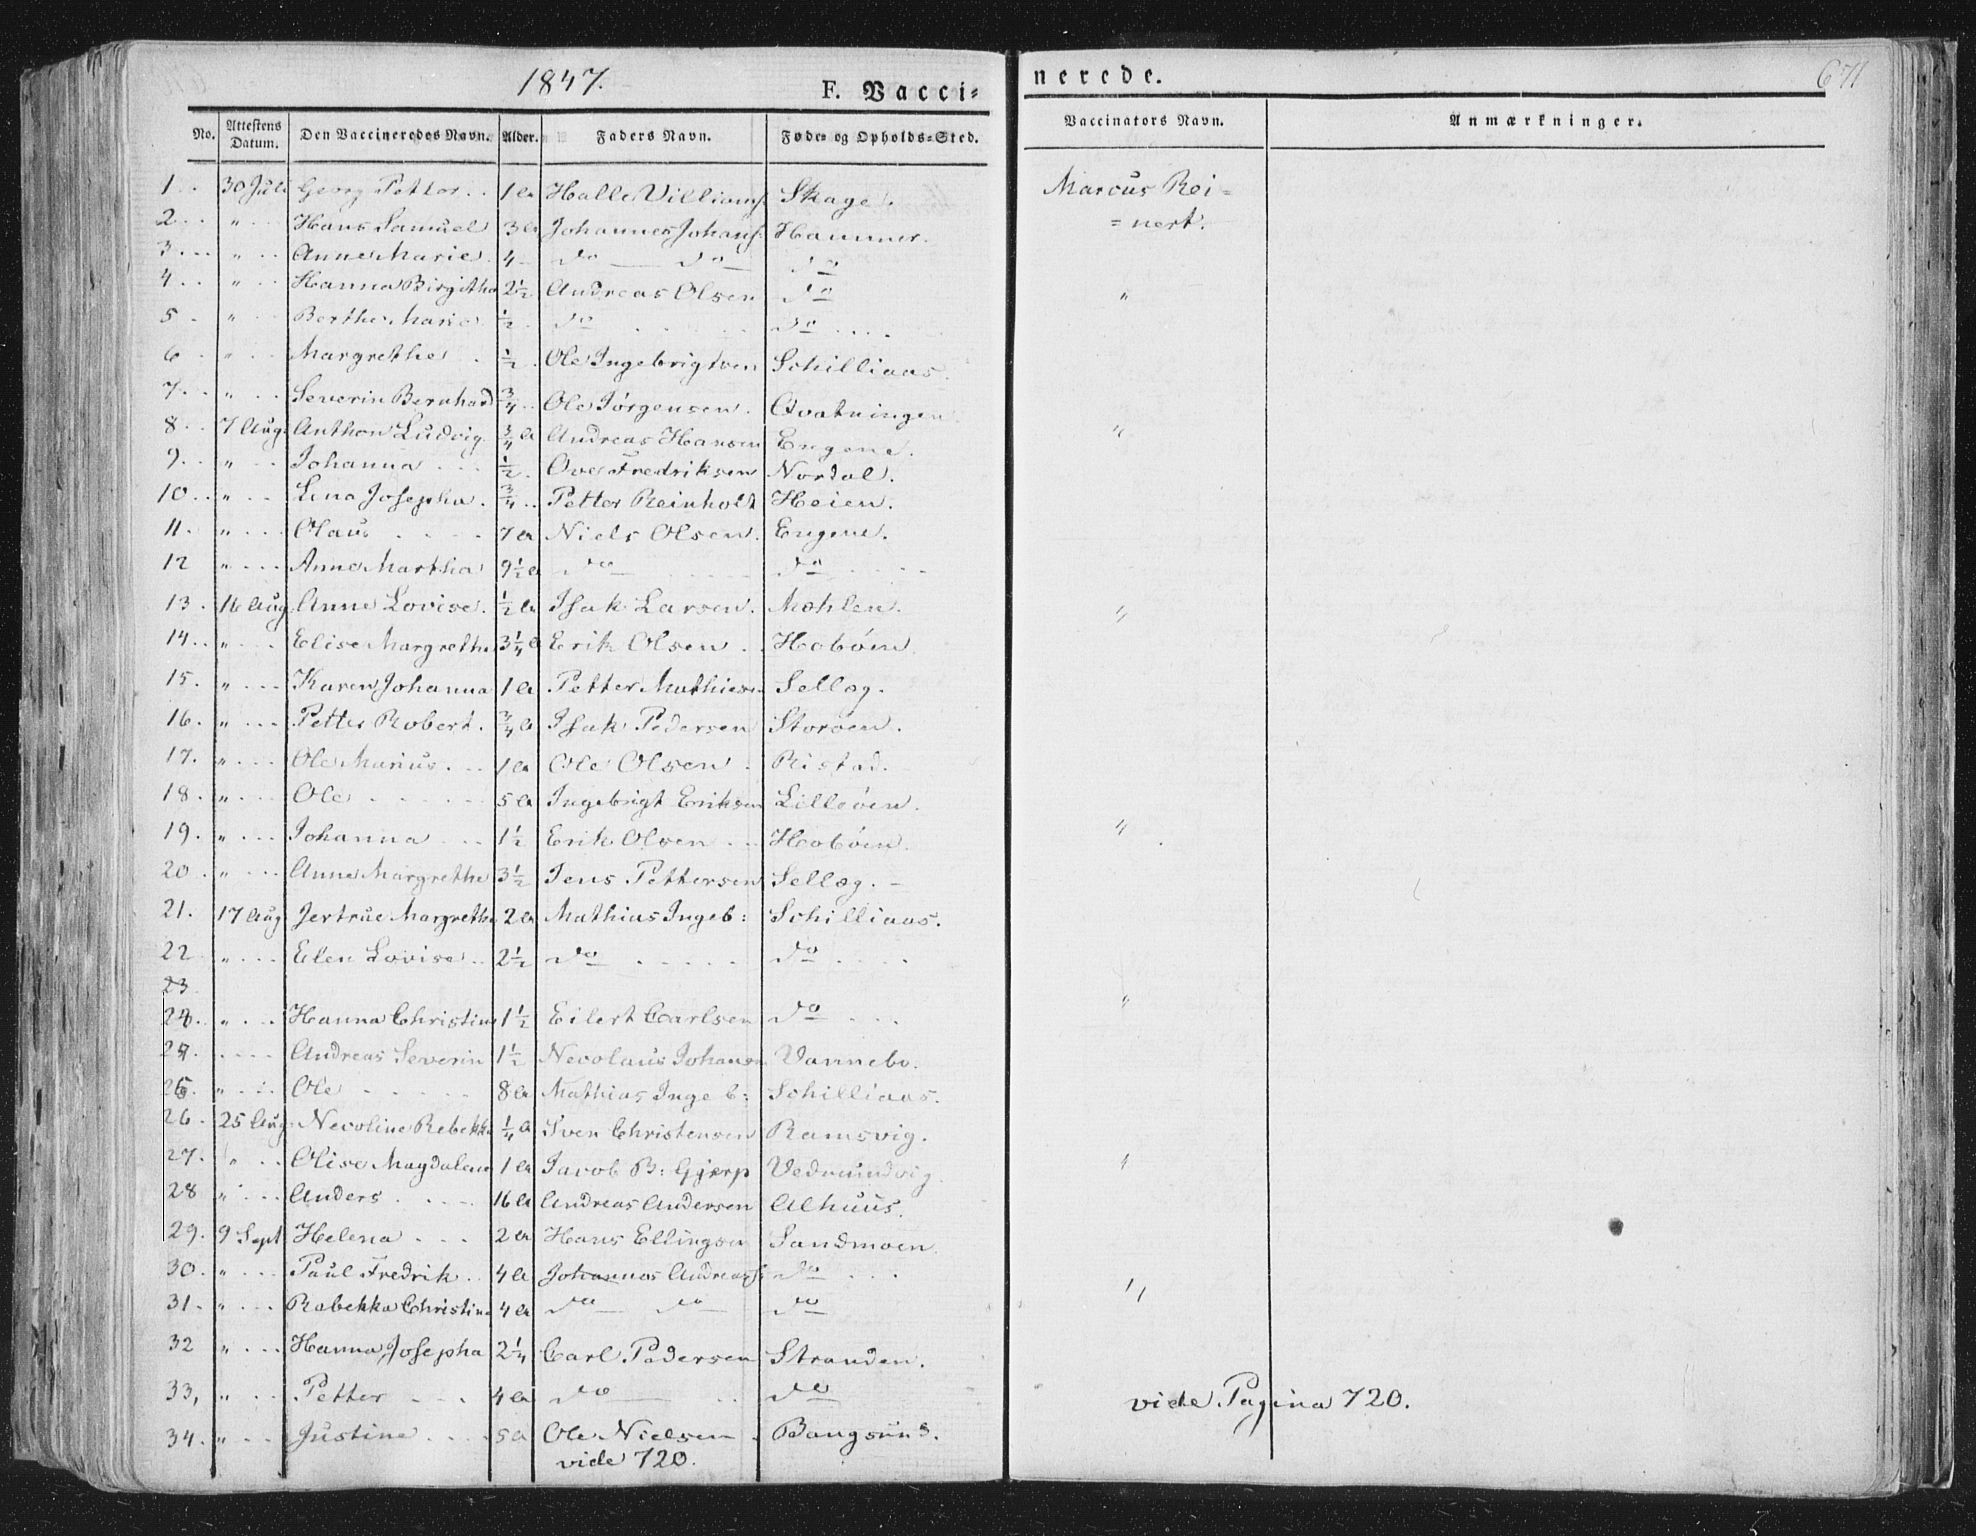 1847.
F. Vacci=
nerede.
671
No. Attestens Datum. Den Vaccineredes Navn. Alder. Faders Navn. Føde- og Opholds-Sted. Vaccinators Navn. Anmærkninger.
1. 30 Juli Georg Petter 1 a Halle Villiams. Skage. Marcus Rei=
2 " Hans Samuel 3 a Johannes Johans. Hammer. =nert.
3 " Anne Marie 4 do do do
4 " Hanna Birgitha 2½ Andreas Olsen do "
5 " Berthe Marie ½ do do
6 " Margrethe ½ Ole Ingebrigtsen Schilliaas.
7 " Severin Bernhard ¾ Ole Jørgensen. Qvatningen
8 7 Aug. Anthon Ludvig ¾ a Andreas Hansen Engene. "
9 " Johanna ½ Ove Fredriksen Nordal.
10 " Lina Josepha. ¾ Petter Reinholt Heien.
11. " Olaus 7 a Niels Olsen. Engene.
12 " Anne Martha 9½ a do do
13. 16 Aug. Anne Lovise. ½ a Isak Larsen. Mohlen. "
14 " Elise Margrethe 3¼ a Erik Olsen Hobøen.
15. " Karen Johanna 1 a Petter Mathiesen Sellæg.
16. " Petter Robert. ¾ a Isak Pedersen Storøen.
17. " Ole Marius. 1 a Ole Olsen Ristad.
18. " Ole 5 a Ingebrigt Eriksen Lilleøen.
19. " Johanna 1½ Erik Olsen Hobøen. "
20 " Anne Margrethe 3½ Jens Pettersen Sellæg. -
21. 17 Aug Jertrue Margrethe 2 a Mathias Ingeb: Schilliaas.
22 " Elen Lovise 2½ do do
23
24. " Hanna Christine 1½ Eilert Carlsen do "
24. Andreas Severin 1½ Necolaus Johansen Vannebo.
26 " Ole 8 a Mathias Ingeb: Schilliaas.
26. 25 Aug. Necoline Rebekka ¼ a Sven Christensen Ramsvig.
27. " Olise Magdalene 1 a Jacob B: Gjerp Vedmundvig. "
28 " Anders 16 a Andreas Andersen Alhuus.
29. 9 Sept Helena 2 a Hans Ellingsen Sandmoen.
30. " Paul Fredrik 4 a Johannes Andreas. do
31. " Rabekka Christine 4 a do do do "
32 " Hanna Josepha 2¼ Carl Pedersen Stranden.
33, " Petter 4 a do do vide Pagina 720.
34. " Justine 5 a Ole Nielsen. Bangsund.
vide 720.